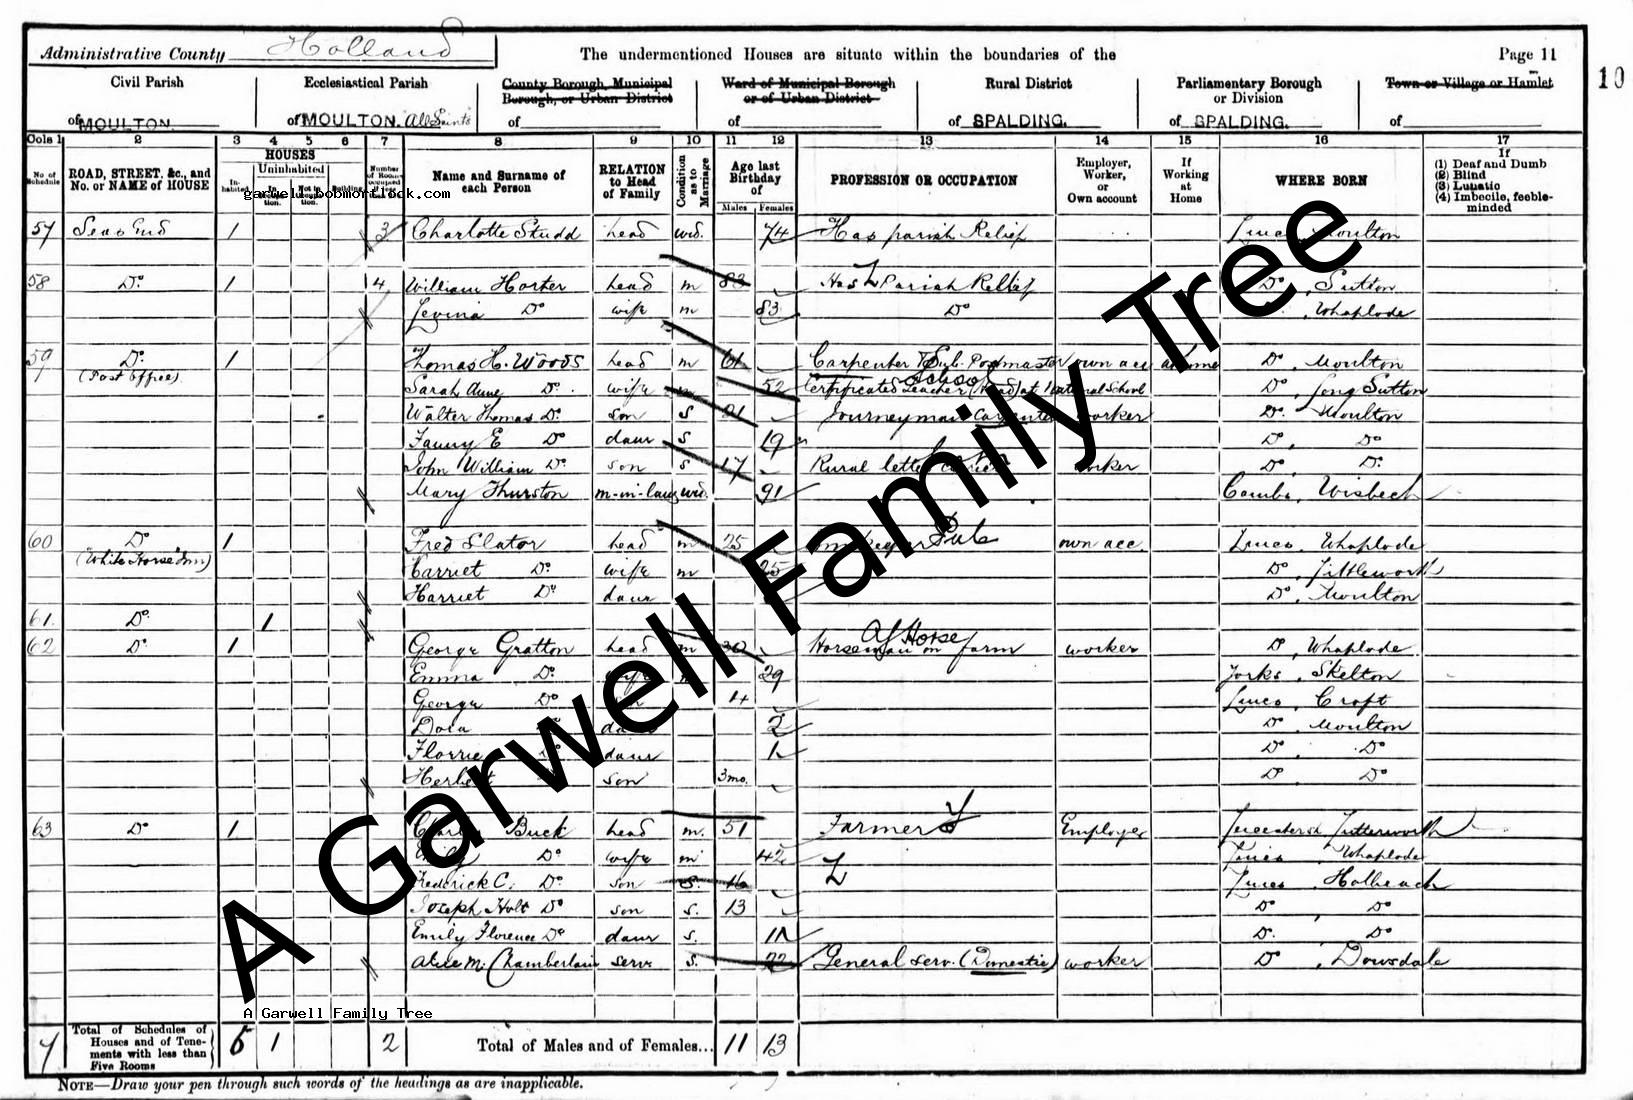 Administrative County Holland The undermentioned Houses are situate within the boundaries of the Page 11
10
Civil Parish Ecclesiastical Parish County Borough, Municipal Borough, or Urban District Ward of Municipal Borough or of Urban District Rural District Parliamentary Borough or Division Town or Village or Hamlet
of MOULTON. of MOULTON. All Saints of of of SPALDING. of SPALDING. of
Cols 1 2 3 4 5 6 7 8 9 10 11 12 13 14 15 16 17
No of Schedule ROAD, STREET, &c., and No. or NAME of HOUSE HOUSES Inhabited Uninhabited In Occupation. Not in Occupation. Building Name and Surname of each Person RELATION to Head of Family Condition as to Marriage Age last Birthday of Males Females PROFESSION OR OCCUPATION Employer, Worker, or Own account If Working at Home WHERE BORN If (1) Deaf and Dumb (2) Blind (3) Lunatic (4) Imbecile, feeble-minded
garwell.bobmortlock.com
57 Seas End 1 3 Charlotte Studd head wid. 74 Has parish Relief Lincs, Moulton
58 Do 1 4 William Horter head m 83 Has Parish Relief Do, Sutton
Levina Do wife m 83 Do , Whaplode
59 Do 1 Thomas H. Woods head m 61 Carpenter & Sub. Postmaster own acc at home Do, Moulton
(Post Office) Sarah Anne Do wife m 52 Certificated School Teacher (Head) at National School Do, Long Sutton
Walter Thomas Do son s 21 Journeyman Carpenter worker Do. Moulton
Fanny E Do daur s 19 Do, Do
John William Do son s 17 Rural letter carrier worker Do, Do
Mary Thurston m-in-law wid. 91 Cambs, Wisbech
60 Do 1 Fred Slator head m 25 Innkeeper Pub own acc. Lincs. Whaplode
(White Horse Inn) Harriet Do wife m 25 Do, Tittleworth
Harriet Do daur Do, Moulton
61. Do. 1
62 Do 1 George Gratton head m 30 Horseman on farm Horse worker Do, Whaplode
Emma Do wife 29 Yorks, Skelton
George Do son 4 Lincs, Croft
Dora Do daur 2 Do, Moulton
Florrie Do daur 1 Do, Do
Herbert son 3mo. Do, Do
63 Do 1 Charles Buck head m. 51 Farmer Employer Leicestersh Lutterworth
Emily Do wife m 42 Lincs, Whaplode
Frederick C. Do son s. 16 Lincs, Holbeach
Joseph Holt Do son s. 13 Do, Do
Emily Florence Do daur s. 11 Do. Do
Alice M. Chamberlain serv s. 22 General serv. (Domestic) worker Do, Dowsdale
A Garwell Family Tree
A Garwell Family Tree
7 Total of Schedules of Houses and of Tenements with less than Five Rooms 6 1 2 Total of Males and of Females... 11 13
NOTE—Draw your pen through such words of the headings as are inapplicable.